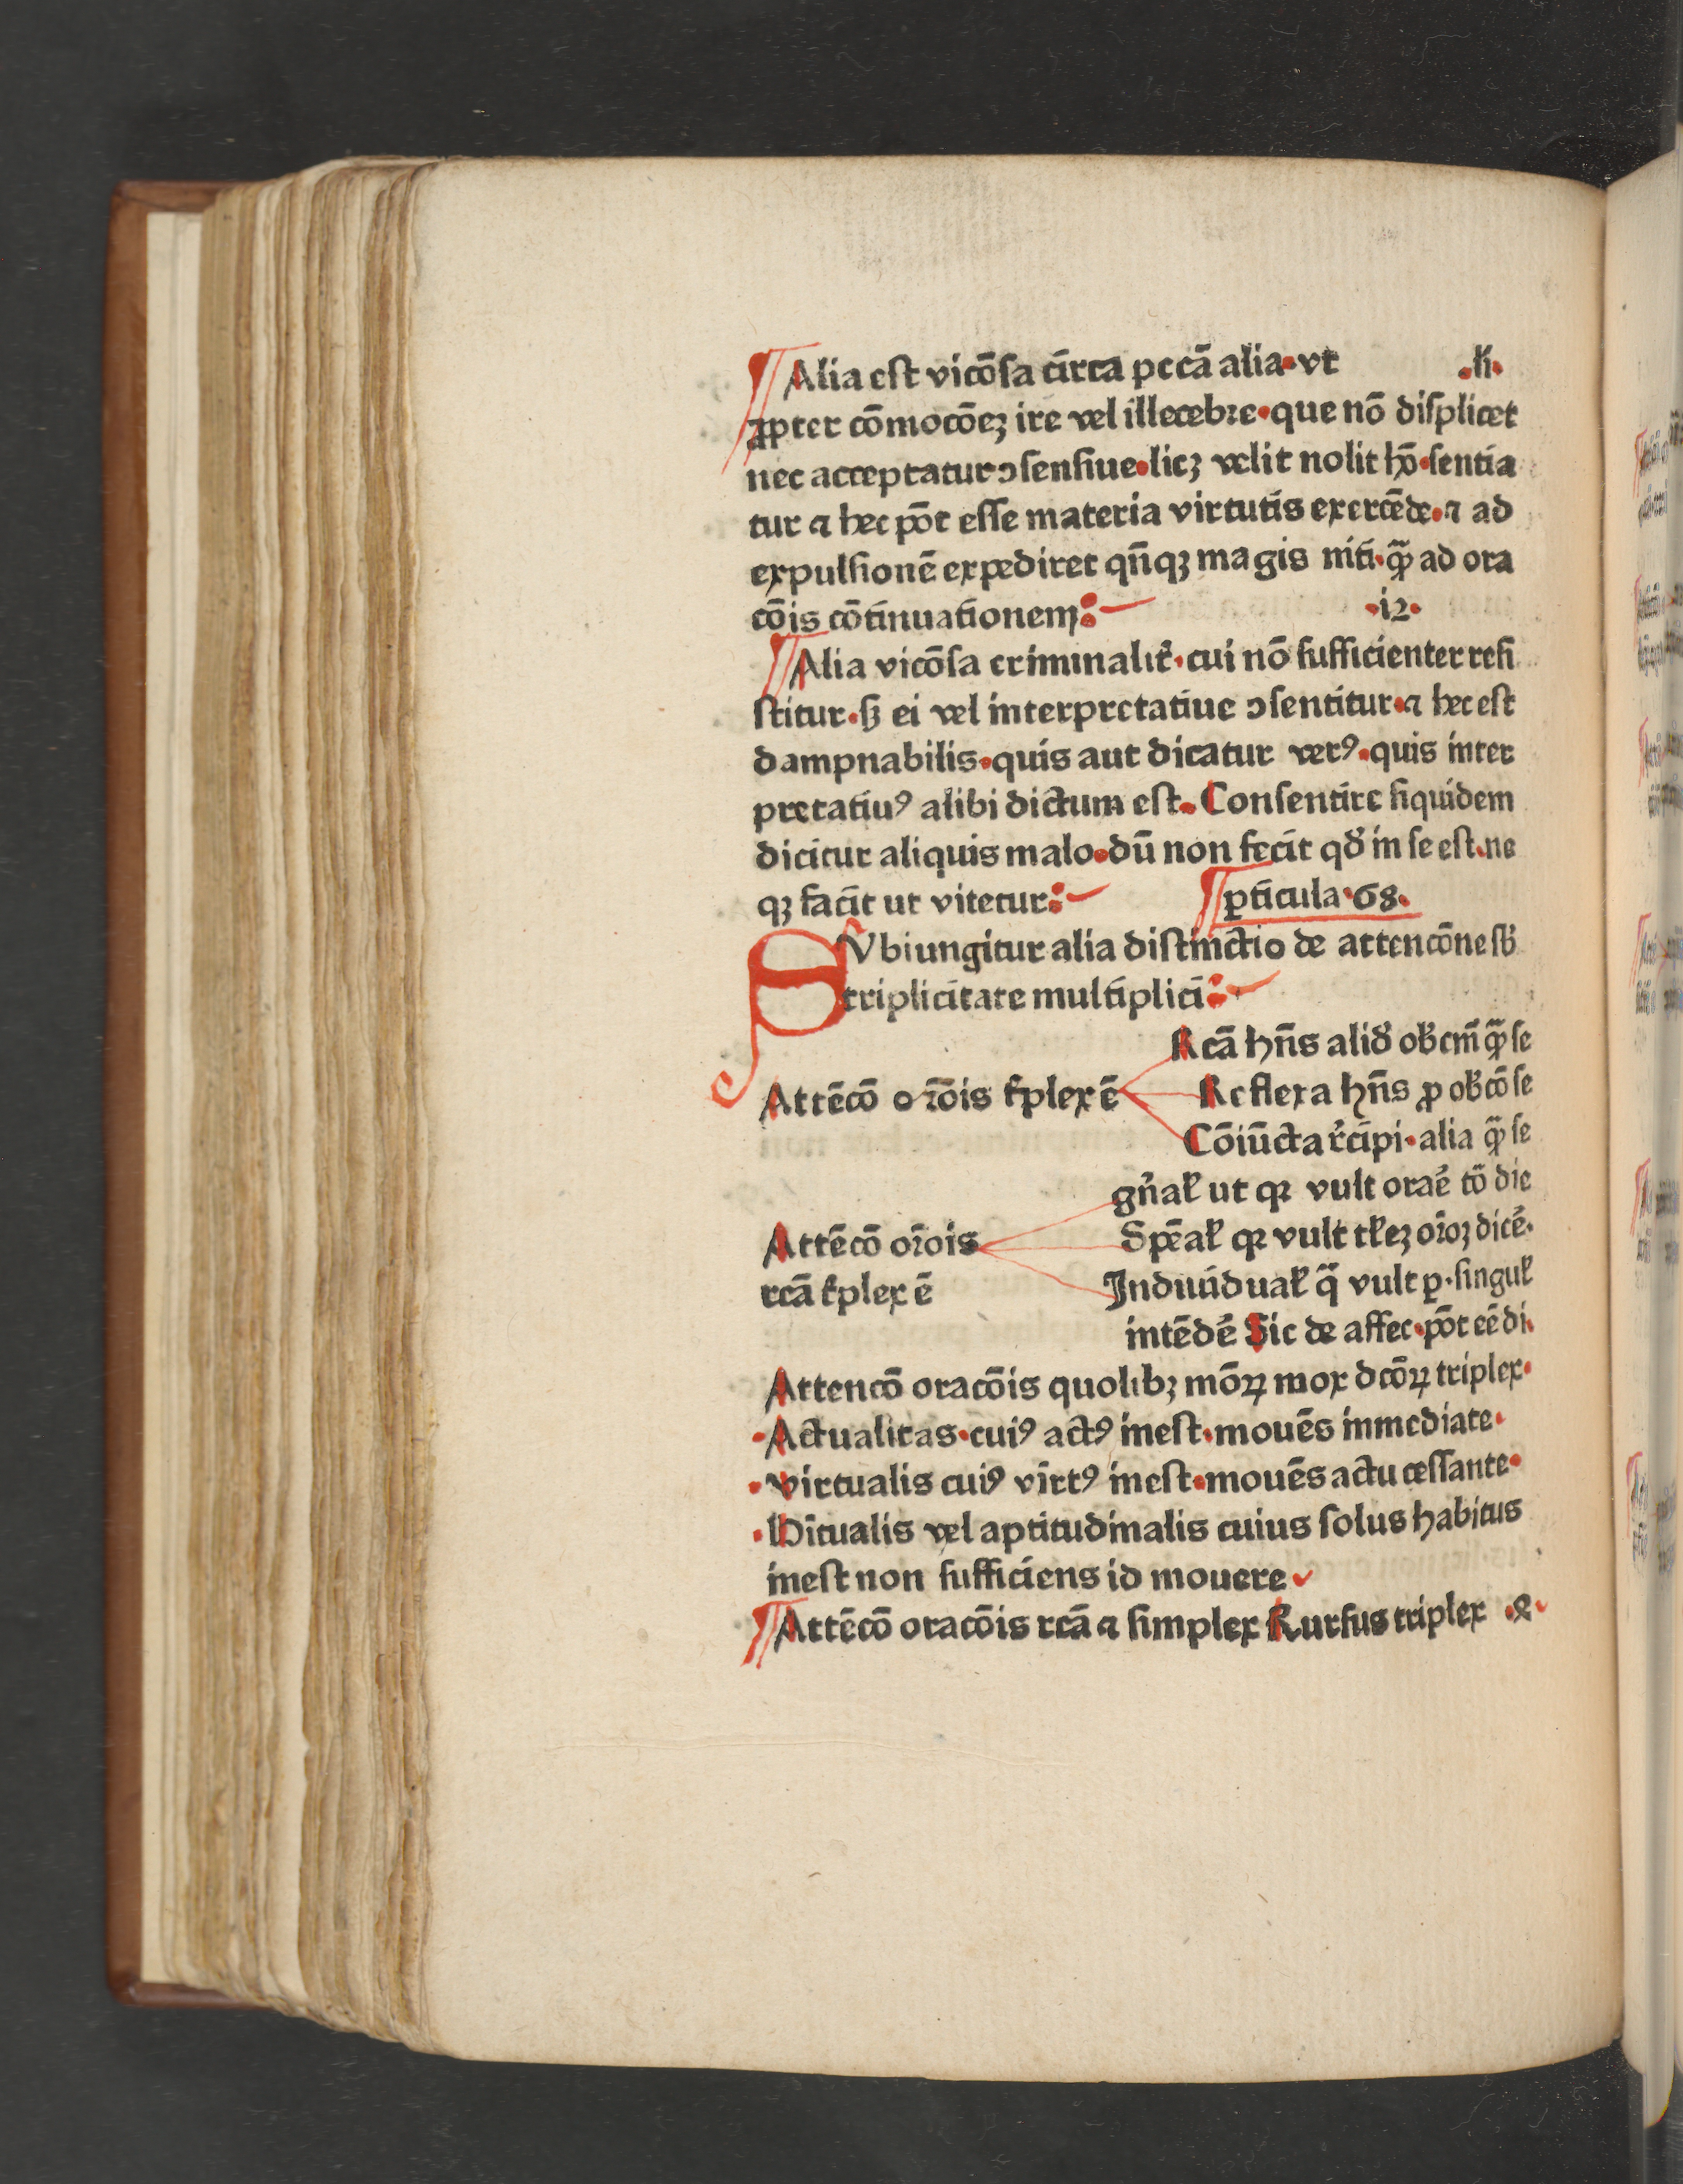 ¶ Alia est vicōsa circa pccā alia. vt .li.
ꝓpter cōmocōeꝫ ire vel illecebre. que nō displicet
nec acceptatur ↄsensiue. licꝫ velit nolit hō. sentia
tur ⁊ hec pōt esse materia virtutis exercēde. ⁊ ad
expulsionē expediret qn̄qꝫ magis niti. qꝫ̄ ad ora
cōis cōtinuationem: .12.
¶ Alia vicōsa criminalit̉. cui nō sufficienter resi
stitur. sꝫ ei vel interpretatiue ↄsentitur. ⁊ hec est
dampnabilis. quis aut dicatur verꝰ. quis inter
pretatiuꝰ alibi dictum est. Consentire siquidem
dicitur aliquis malo. dū non fecit qđ in se est. ne
qꝫ facit ut vitetur: ¶ ꝑticula. 68.
SVbiungitur alia distinctio de attencōne sb̉
triplicitate multiplici:
Rcā hn̄s aliđ ob̉cm̄ qꝫ̄ se
Attēcō orōis t̉plex ē Reflexa hn̄s ꝓ ob̉cō se
Cōiūcta r̉cipi. alia qꝫ̄ se
gn̉aƚ ut qꝛ vult oraẻ tō die
Attēcō orōis Spēaƚ qꝛ vult tƚeꝫ orōꝫ dicẻ.
rcā t̉plex ē Indiuiduaƚ q̄ vult ꝑ. singuƚ
intēdẻ Sic de affec. pōt eē di.
Attencō oracōis quolibꝫ mōꝝ mox dcōꝝ triplex.
.Actualitas. cuiꝰ actꝰ inest. mouēs inmediate.
.virtualis cuiꝰ virtꝰ inest. mouēs actu cessante.
.Hītualis vel aptitudinalis cuius solus habitus
inest non sufficiens id mouere
¶ Attēcō oracōis rcā ⁊ simplex Rursus triplex .&.